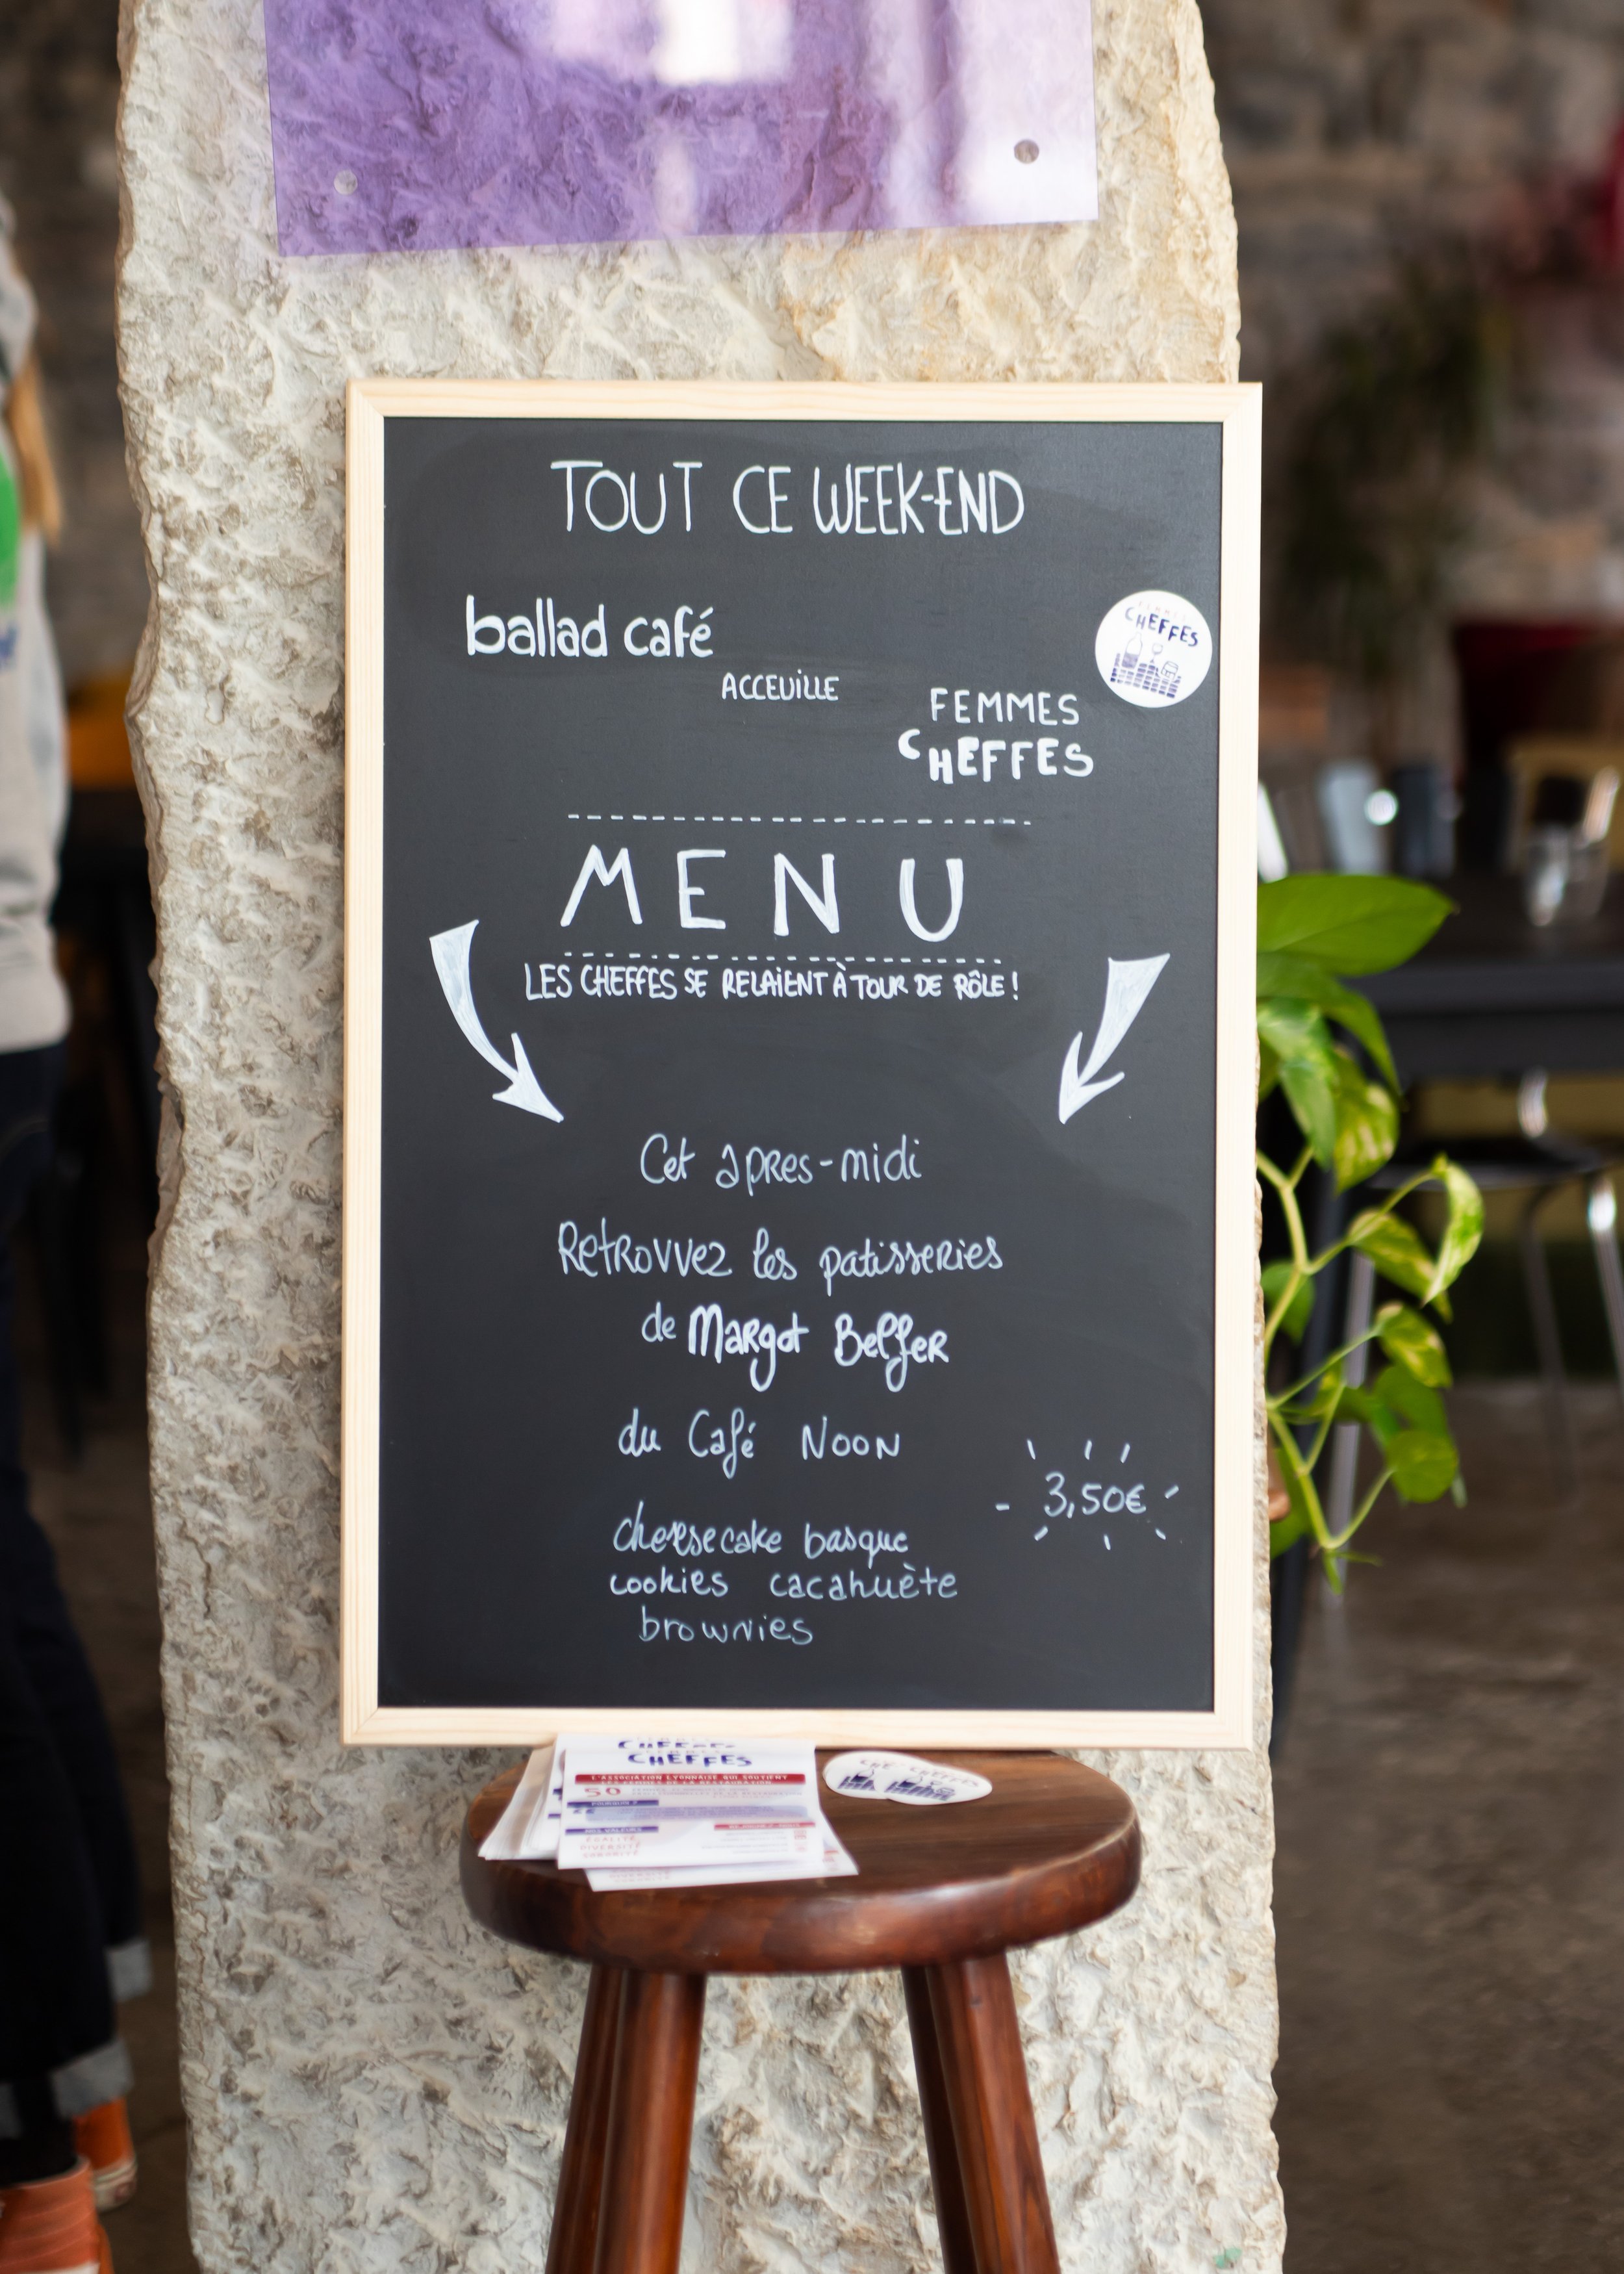 TOUT CE WEEK-END
ballad café
ACCEUILLE
FEMMES
CHEFFES
FEMMES
CHEFFES
MENU
LES CHEFFES SE RELAIENT À TOUR DE RÔLE !
Cet apres-midi
Retrouvez les patisseries
de Margot Belfer
du Café NOON
3,50€
cheesecake basque
cookies cacahuète
brownies
CHEFFES
CHEFFES
L'ASSOCIATION LYONNAISE QUI SOUTIENT
LES FEMMES DE LA RESTAURATION
50
NOS VALEURS
ÉGALITÉ
DIVERSITÉ
CHEFFES